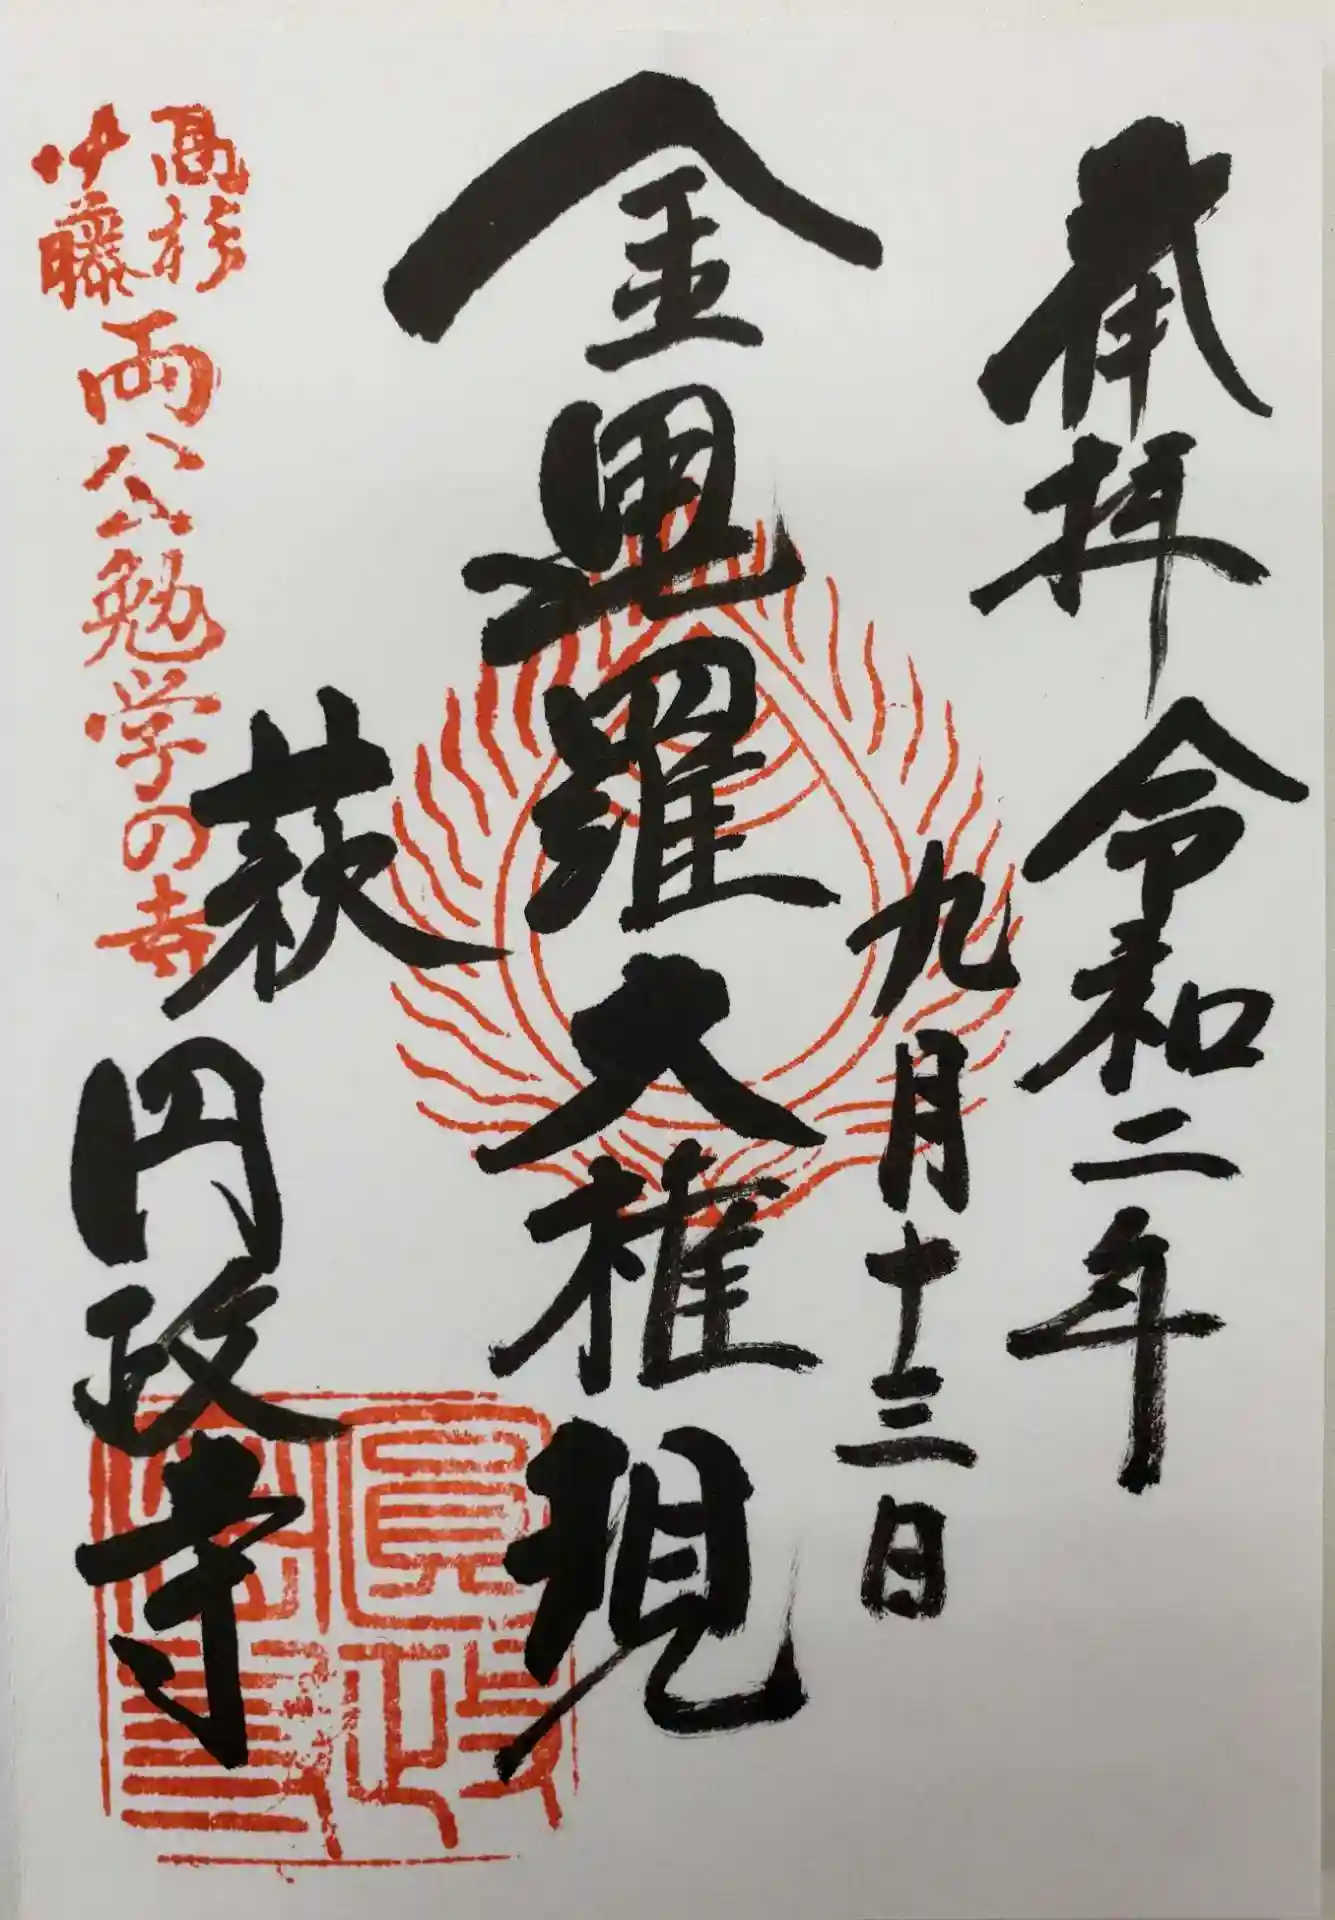 奉拝 令和二年
九月十三日
金毘羅大権現
萩 円政寺
高杉
伊藤
両公勉学の寺